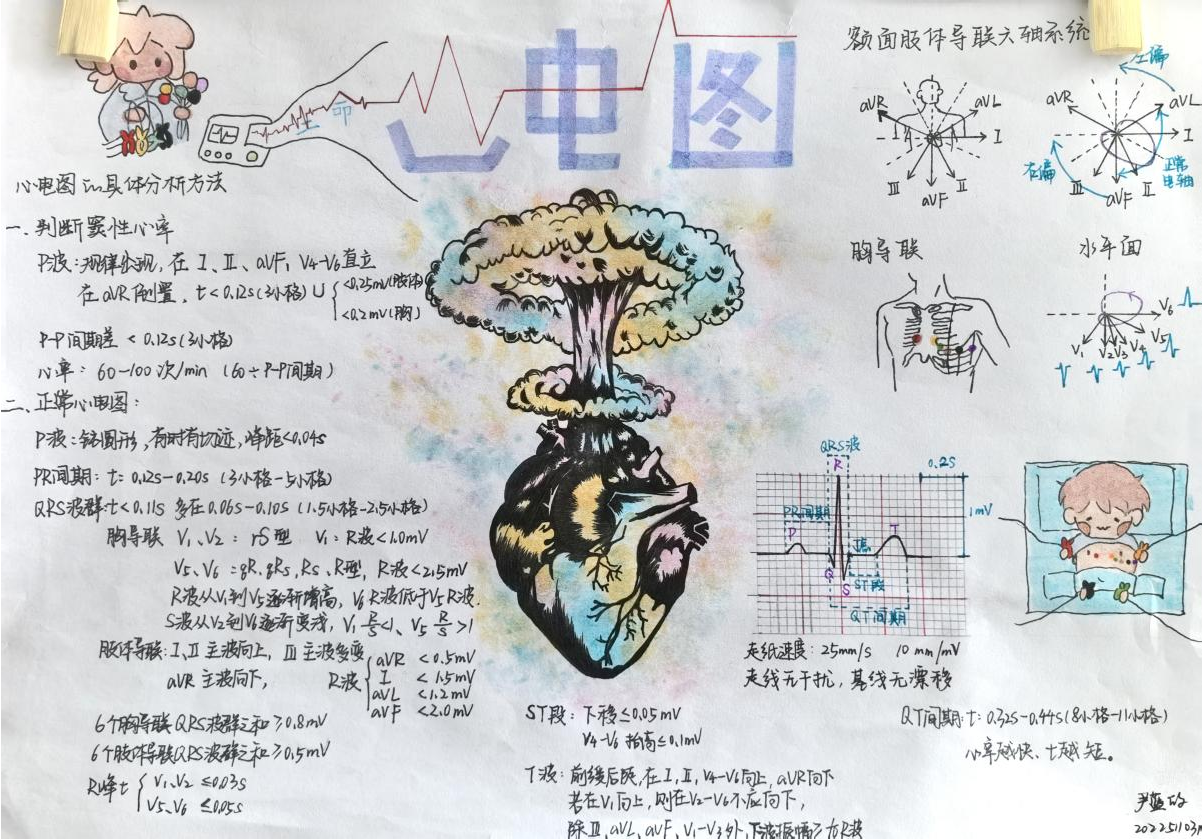 心电图
生命
心电图的具体分析方法
一、判断窦性心率
P波：规律出现，在 I、II、aVF，V4-V6直立
在aVR倒置，t<0.12s(3小格) U { <0.25mV(肢体)
<0.2mV(胸)
P-P间期差 <0.12s(3小格)
心率：60-100次/min (60÷P-P间期)
二、正常心电图：
P波：钝圆形，有时有切迹，峰距<0.04s
PR间期：t：0.12s-0.20s (3小格-5小格)
QRS波群：t<0.11s 多在0.06s-0.10s (1.5小格-2.5小格)
胸导联 V1、V2：rS型 V1：R波<1.0mV
V5、V6：qR、qRs、Rs、R型，R波<2.5mV
R波从V1到V5逐渐增高，V6 R波低于V5 R波.
S波从V2到V6逐渐变浅，V1 R/S<1、V5 R/S>1
肢体导联：I、II 主波向上，III 主波多变
aVR 主波向下，
R波 { aVR <0.5mV
I <1.5mV
aVL <1.2mV
aVF <2.0mV
6个胸导联QRS波群之和≥0.8mV
6个肢体导联QRS波群之和≥0.5mV
R峰t { V1、V2 ≤0.03s
V5、V6 ≤0.05s
ST段：下移≤0.05mV
V4-V6 抬高≤0.1mV
T波：前缓后陡，在I，II，V4-V6向上，aVR向下
若在V1向上，则在V2-V6不应向下，
除III，aVL，aVF，V1-V3外，
额面肢体导联六轴系统
aVR
aVL
I
III
II
aVF
左偏
aVR
aVL
I
右偏
III
aVF
II
正常电轴
胸导联
水平面
V6
V5
V4
V3
V2
V1
QRS波
R
0.2s
1mV
PR间期
P
T
Q
S
ST段
QT间期
走纸速度：25mm/s 10mm/mV
走线无干扰，基线无漂移
QT间期：t：0.32s-0.44s(8小格-11小格)
心率越快、t越短。